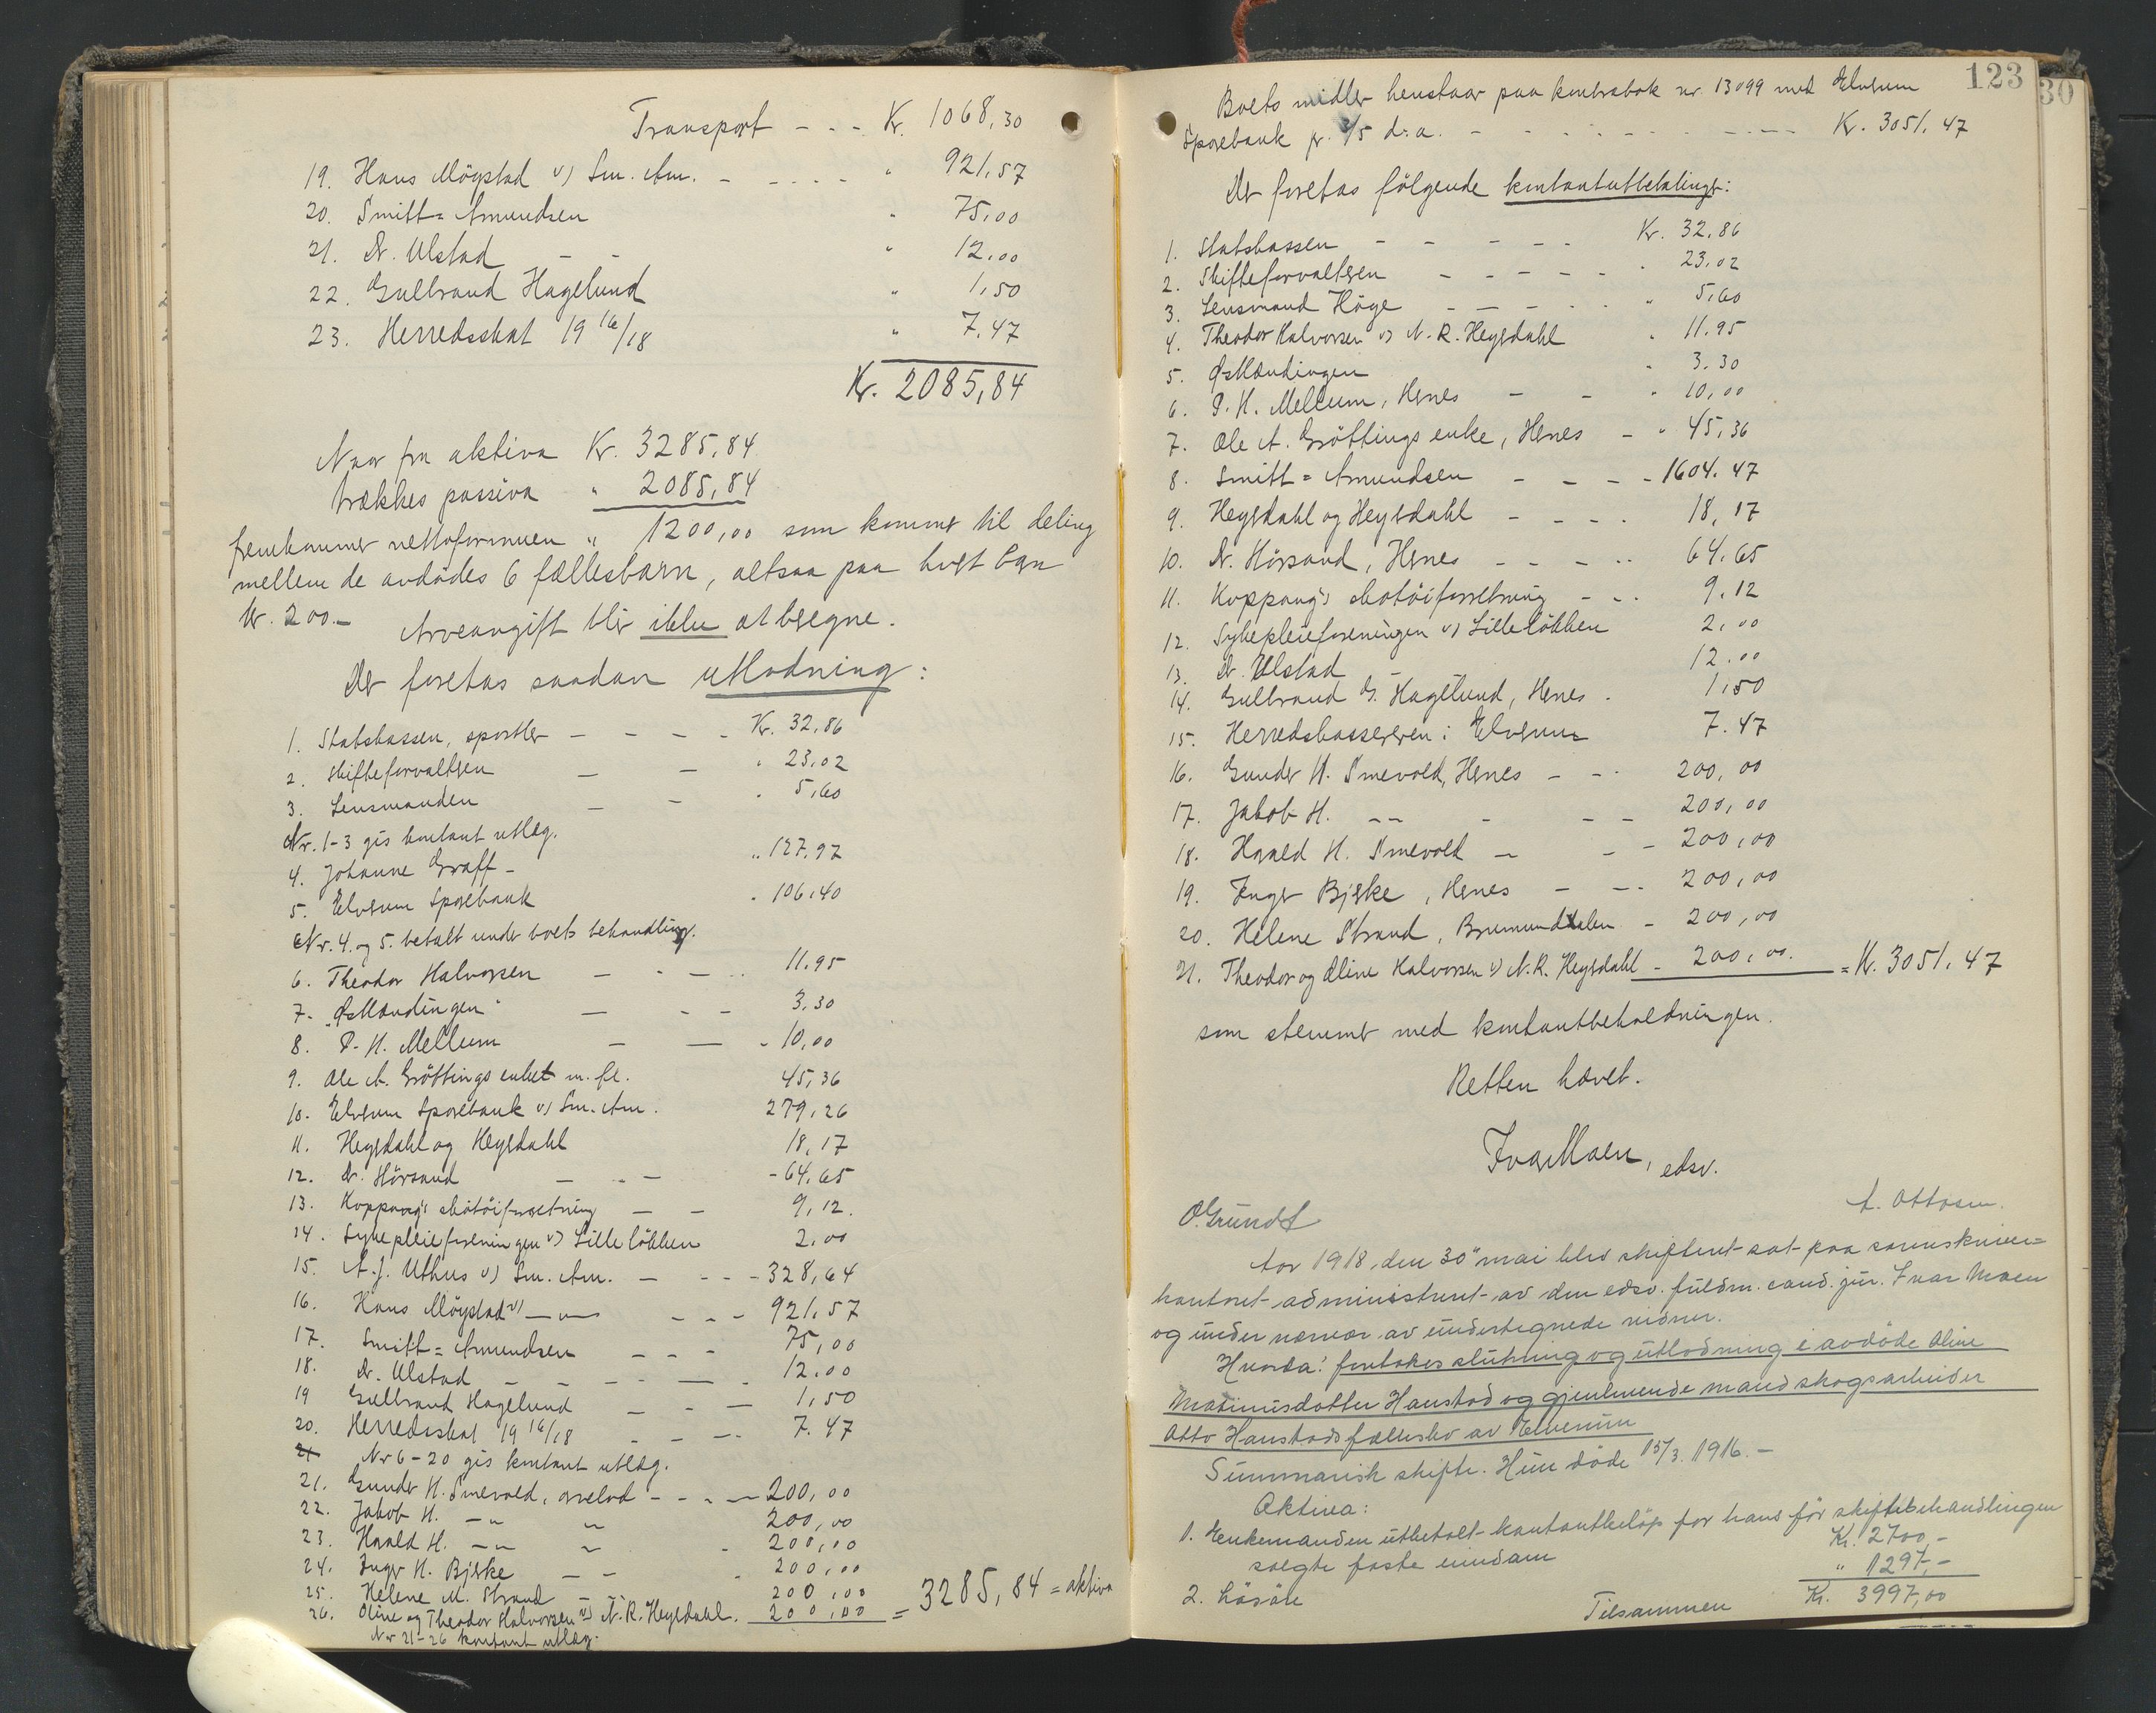 Transport - - - Kr. 1068,30
19. Hans Mögstad v/ Sm. Am. - - - - - " 921,57
20. Smitt=Amundsen " 75,00
21. Dr. Ulstad - - " 12,00
22. Gulbrand Hagelund " 1,50
23. Herredsskat 19 16/18 " 7,47
Kr. 2085,84
Naar fra aktiva Kr. 3285,84
trækkes passiva " 2085,84
fremkommer nettoformuen " 1200,00 som kommer til deling
mellem de avdödes 6 fællesbarn, altsaa paa hvert barn
kr. 200.-
Arveavgift blir ikke at beregne.
Der foretas saadan utlodning:
1. Statskassen, sportler - - - - Kr. 32,86
2. Skifteforvalteren - - " 23,02
3. Lensmanden - - " 5,60
Nr. 1-3 gis kontant utlæg.
4. Johanne Graff - " 127,97
5. Elverum Sparebank " 106,40
Nr. 4. og 5. betalt under boets behandling.
6. Theodor Halvorsen - - - - 11.95
7. "Østlændingen" - - - 3,30
8. P. H. Mellum - - - 10,00
9. Ole A. Gröttings enke m. fl. 45,36
10. Elverum Sparebank v/ Sm. Am. 279,26
11. Heyerdahl og Heyerdahl 18,17
12. Dr. Hörsand - - - - 64,65
13. Koppang's skotöiforretning - - 9,12.
14. Sykepleieforeningen v/ Lille lökken 2,00
15. A. J. Uthus v/ Sm. Am. - - - - 328,64
16. Hans Mögstad v/ -"- - - - 921,57
17. Smitt=Amundsen - - - 75,00
18. Dr. Ulstad - - - - - - 12.00
19 Gulbrand Hagelund - - - 1,50
20. Herredsskat 19 16/18 - - - 7.47
21 Nr 6-20 gis kontant utlæg.
21. Gunder H. Smevold, arvelod - - - - 200,00
22. Jakob H. -"- " 200,00
23. Harald H. -"- " - 200,00
24. Inger H. Bjerke - - - 200,00
25. Helene M. Strand - - 200,00
26. Oline og Theodor Halvorsen v/ N. R. Heyerdahl. 200,00 = 3285,84 = aktiva
Nr 21-26 kontant utlæg.
123
30
Boets midler henstaar paa kontrabok nr. 13099 med Elverum
Sparebank pr. 3/5 d. a. - - - - - - - - - Kr. 3051.47
Der foretas fölgende kontantutbetalinger:
1. Statskassen - - - - - Kr. 32,86
2. Skifteforvalteren - - - - - " 23,02
3. Lensmand Höge - - - - - " 5,60
4. Theodor Halvorsen v/ N. R. Heyerdahl " 11.95
5. Østlændingen " 3.30
6. P. H. Mellum, Hernes - - " 10,00
7. Ole A. Gröttings enke, Hernes - " 45,36
8. Smitt=Amundsen - - - - 1604.47
9. Heyerdahl og Heyerdahl - - - - 18,17
10. Dr. Hörsand, Hernes - - - - - 64.65
11. Koppang's skotöiforretning - - - 9,12
12. Sykepleieforeningen v/ Lillelökken 2,00
13. Dr. Ulstad - 12.00
14. Gulbrand G. Hagelund, Hernes - 1,50
15. Herredskassereren i Elverum 7.47
16. Gunder H. Smevold, Hernes - - - 200,00
17. Jakob H. -"- - - - 200,00
18. Harald H. Smevold - - - 200,00
19. Inger Bjerke, Hernes - - - 200,00
20. Helene Strand, Brumunddalen - 200,00
21. Theodor og Oline Halvorsen v/ N. R. Heyerdahl - 200,00. = Kr. 3051,47
som stemmer med kontantbeholdningen.
Retten hævet.
Ivar Moen, edsv.
O. Grundt A. Ottosen.
Aar 1918, den 30" mai blev skifteret sat paa sorenskriver=
kontoret administrert av den edsv. fuldm. cand. jur. Ivar Moen
og under nærvær av undertegnede vidner.
Hvorda: foretokes slutning og utlodning i avdöde Oline
Martinusdatter Haustad og gjenlevende mand skogsarbeider
Otto Haustads fællesbo av Elverum
Summarisk skifte. Hun döde 15/3. 1916. -
Aktiva:
1. Enkemanden utbetalt kontantbelöp for hans för skiftebehandlingen
solgte faste eiendom Kr. 2700,-
2. Lösöre " 1297,-
Tilsammen Kr. 3997,00